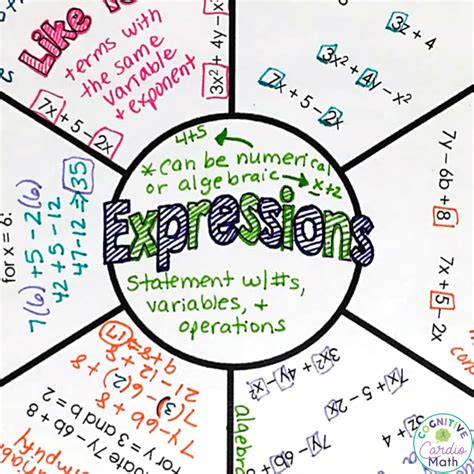 Like
terms with
the same
variable
+ exponent
7x + 5 - 2x
3x² + 4y -
3z + 4
3x² + 4y - x²
7x + 5 - 2x
4+5
*Can be numerical
or algebraic → x+2
Expressions
Statement w/ #s,
variables, +
operations
7y - 6b + 8
7x + 5 - 2x
3x² 4y - x²
7x + 5 - 2x
7y - 6b + 8
algebra
7y - 6b + 8
for y = 3 and b = 2
7y - 6b + 8
7(3) - 6(2) + 8
21 - 12 + 8
9 + 8 = 17
for x = 6:
7(6) + 5 - 2(6)
42 + 5 - 12
47 - 12 → 35
COGNITIVE
Cardio
Math